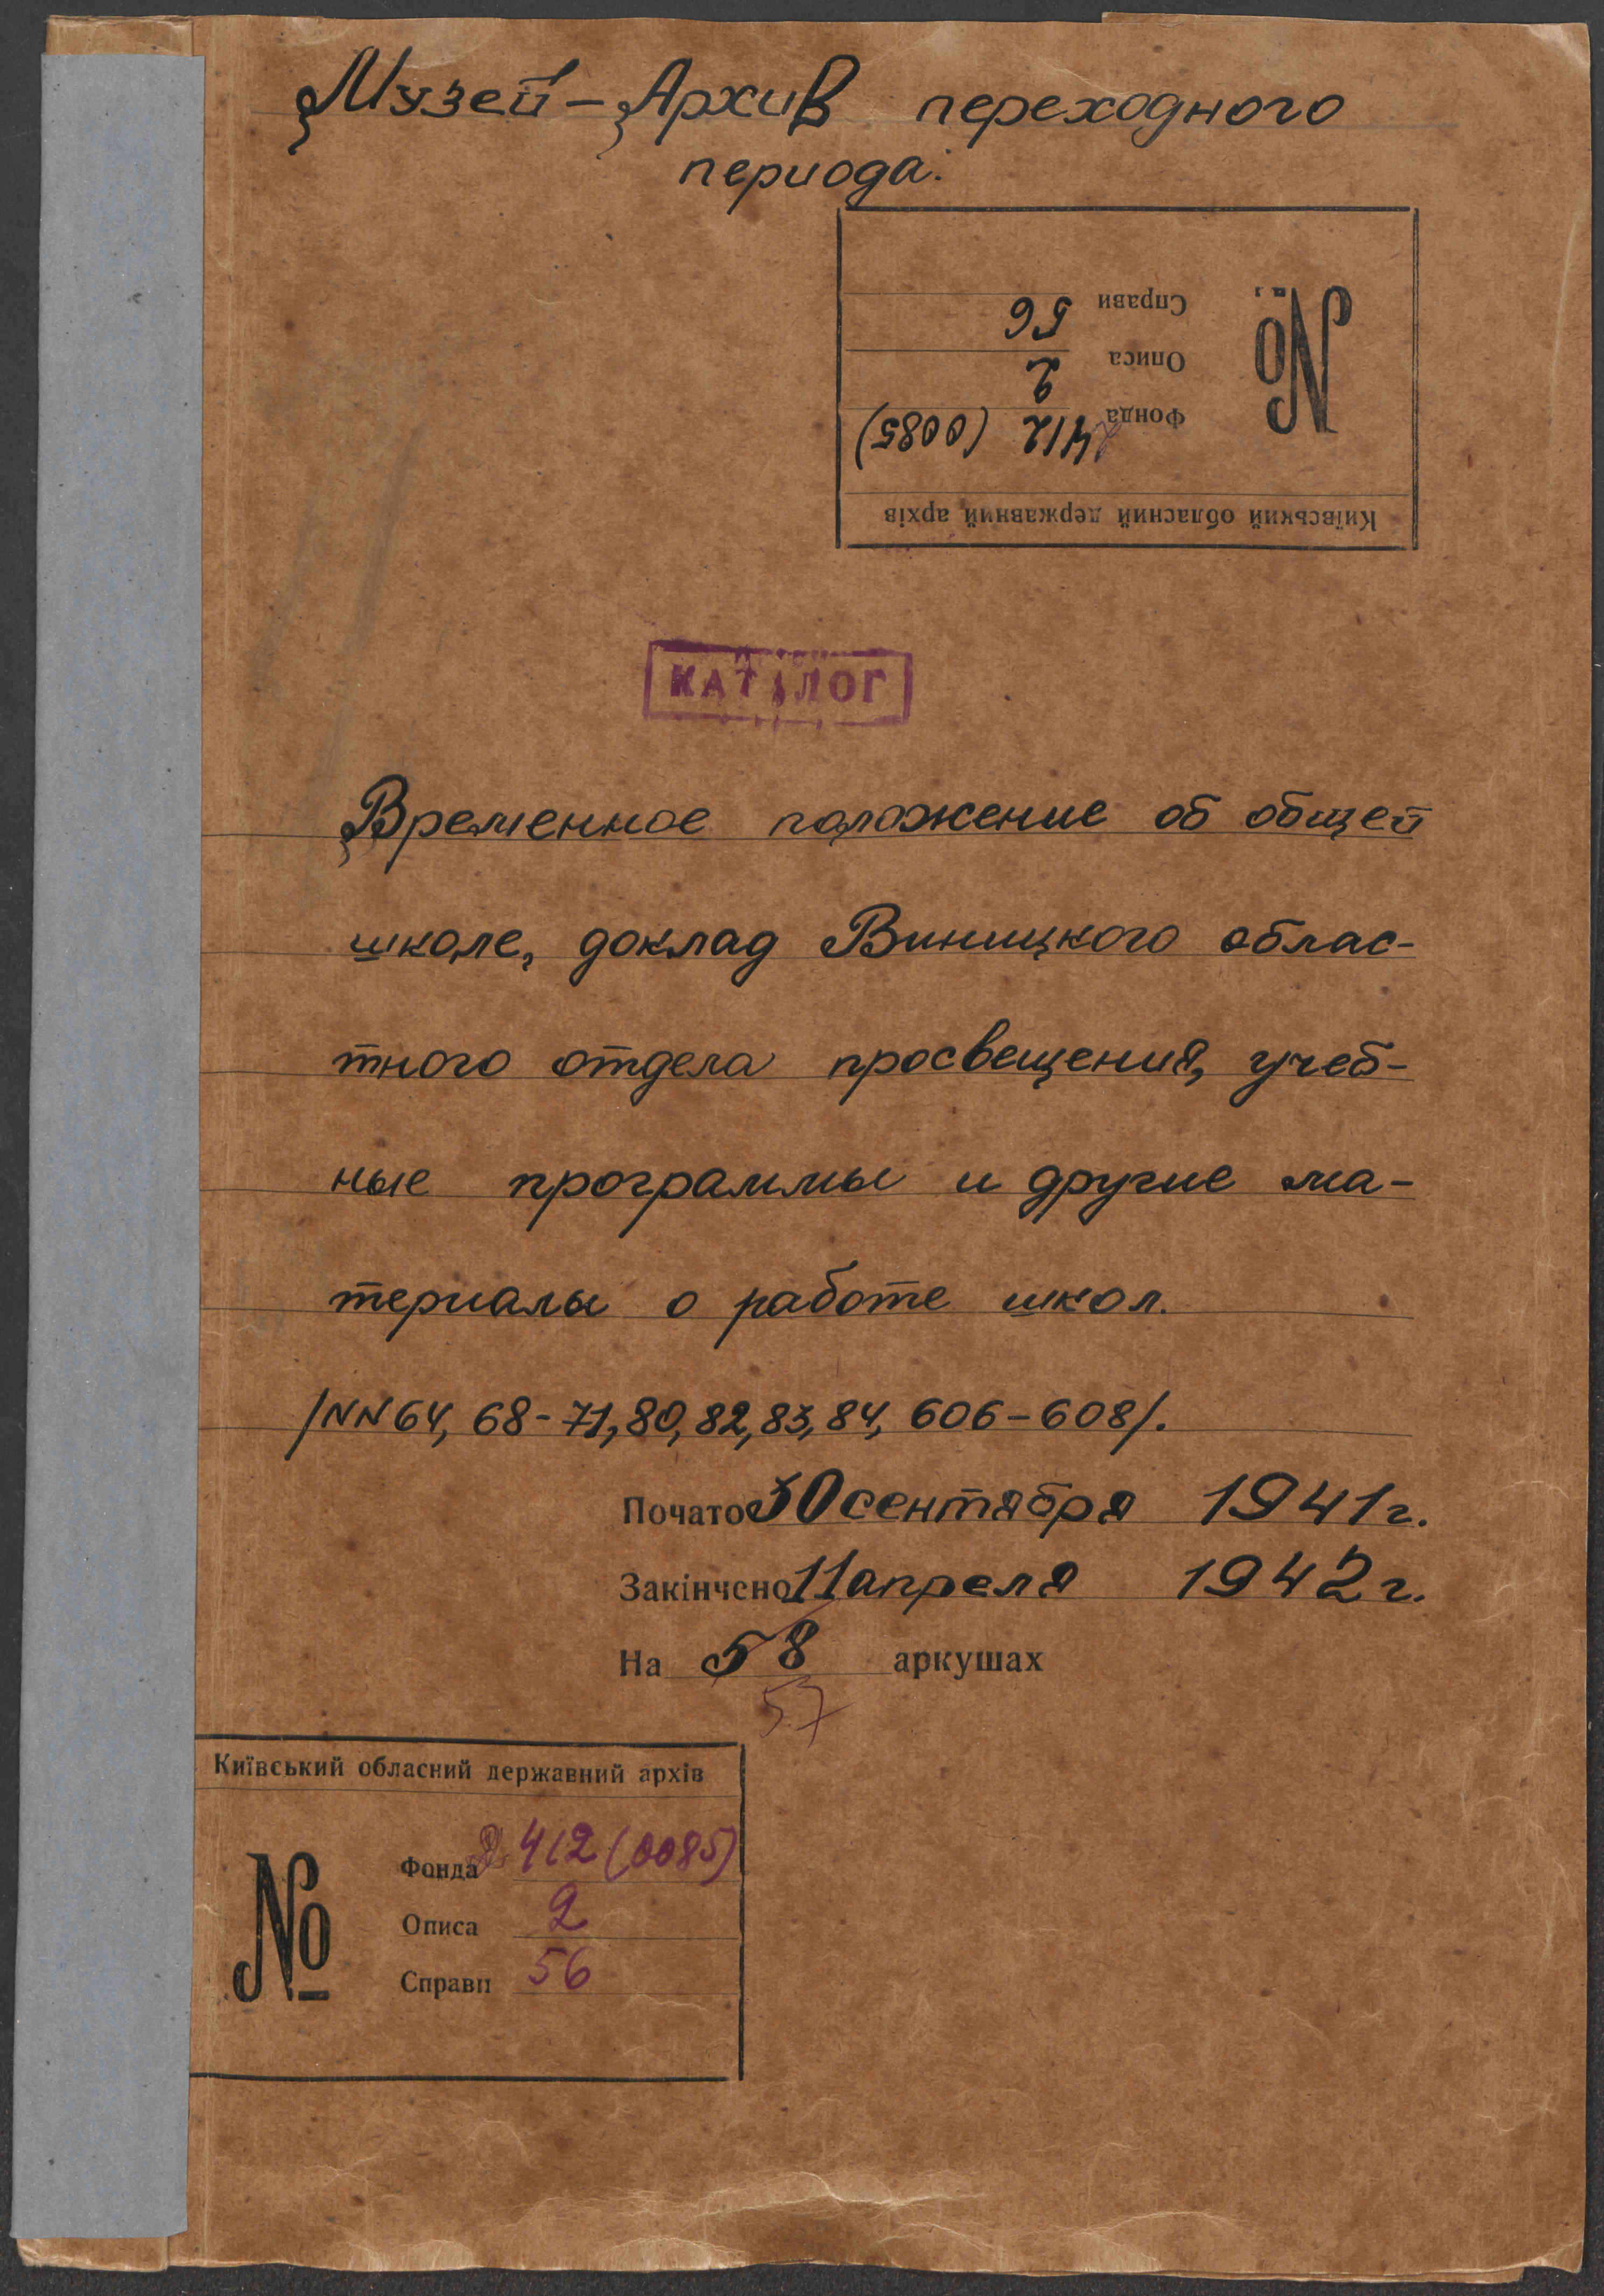 Музей-Архив переходного
периода.
Київський обласний державний архів
№
Фонда 412 (0085)
Описа 2
Справи 56
КАТАЛОГ
Временное положение об общей
школе, доклад Виницкого облас-
тного отдела просвещения, учеб-
ные программы и другие ма-
териалы о работе школ.
/NN64, 68-71, 80, 82, 83, 84, 606-608/.
Почато 30 сентября 1941 г.
Закінчено 11 апреля 1942 г.
На 58 аркушах
57
Київський обласний державний архів
№
Фонда 412 (0085)
Описа 2
Справи 56